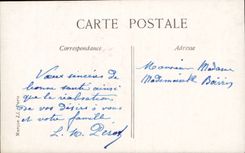 CARTE POSTALE
Correspondance
Adresse
Vœux sincères de
bonne santé ainsi
que la réalisation
de vos désirs à vous
et votre famille.
Monsieur Madame
Mademoiselle